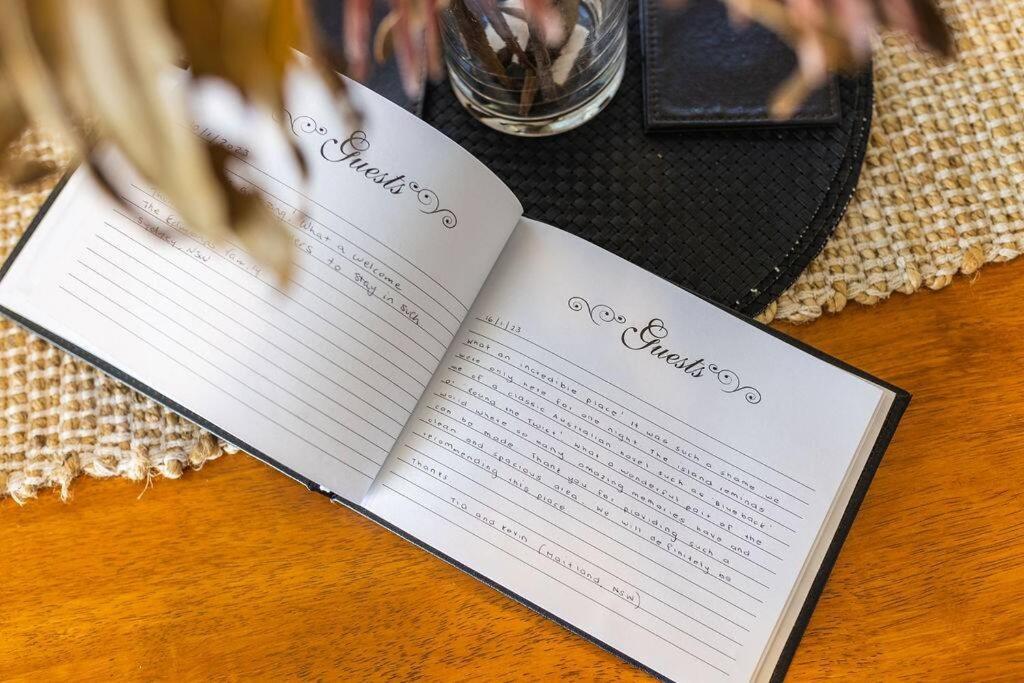 Guests
/1/2023
! What a welcome
to stay in such
The Family
Sydney, NSW
Guests
16/1/23
What an incredible place! It was such a shame we
were only here for one night. The island reminds
me of a classic Australian novel such as 'Blueback'
or 'Round the Twist'. What a wonderful part of the
world where so many amazing memories have and
can be made. Thank you for providing such a
clean and spacious area. We will definitely be
recommending this place.
Thanks
Tia and Kevin (Maitland, NSW)